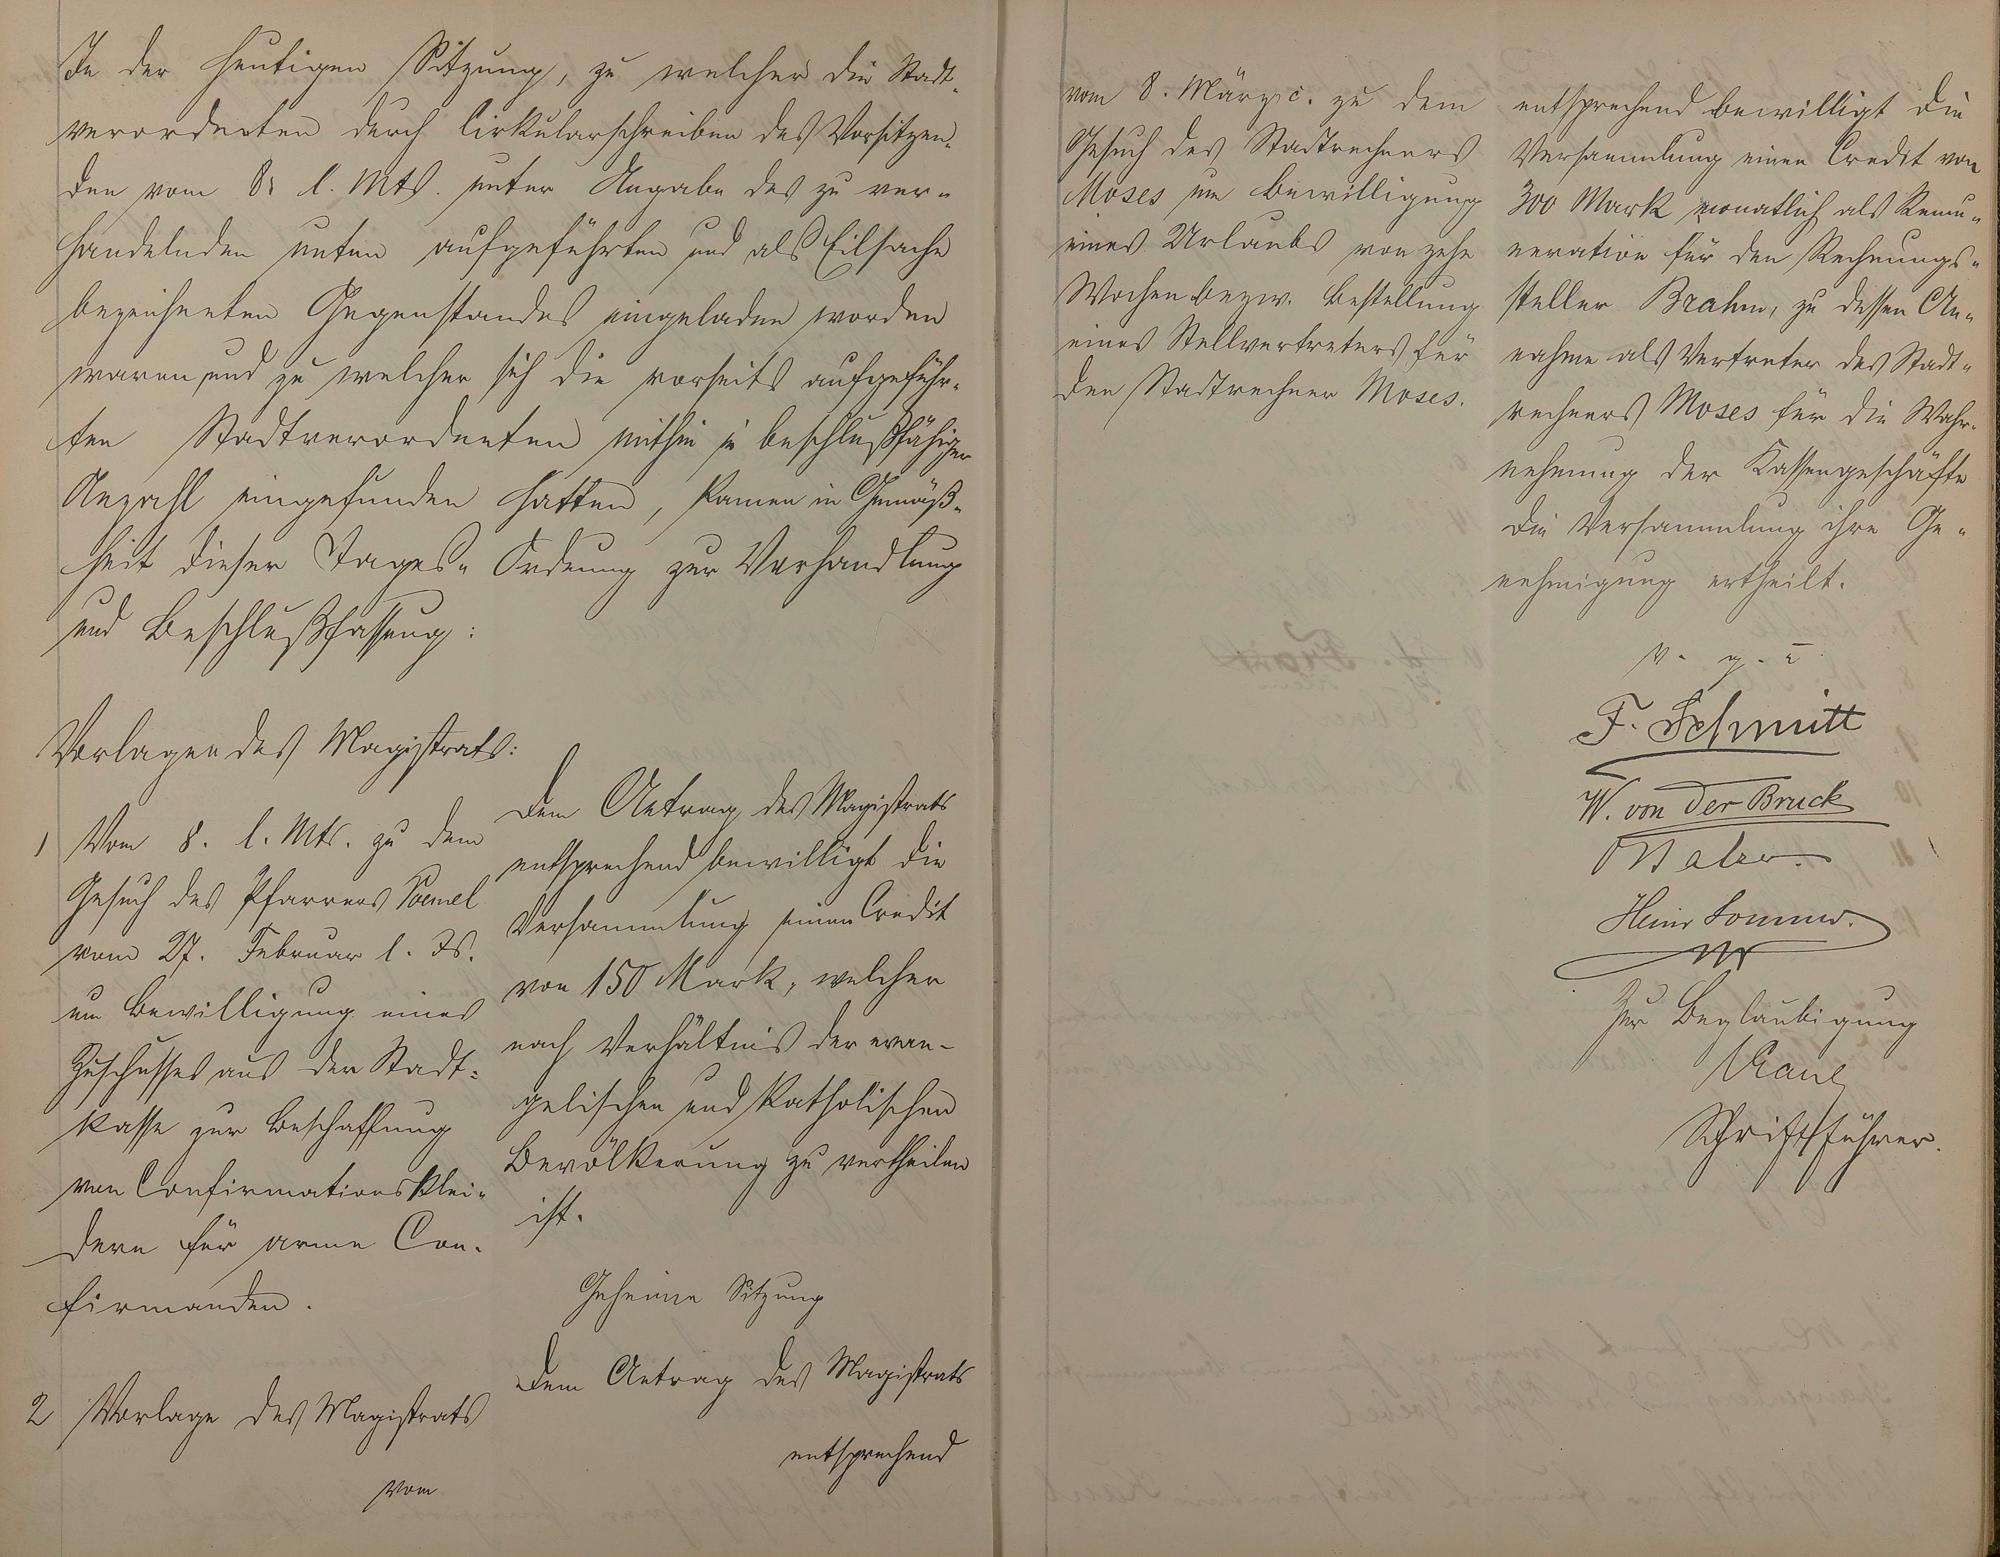 In der heutigen Sitzung, zu welcher die Stadt-
verordneten durch Cirkularschreiben des Vorsitzen-
den vom 8. l. Mts. unter Angabe des zu ver-
handelnden unten aufgeführten und als Eilsache
bezeichneten Gegenstandes eingeladen worden
waren und zu welcher sich die vorseits aufgeführ-
ten Stadtverordneten mithin in beschlußfähiger
Anzahl eingefunden hatten, kamen in Gemäß-
heit dieser Tages-Ordnung zur Verhandlung
und Beschlußfassung:
Vorlagen des Magistrats:
1) Vom 8. l. Mts. zu dem
Gesuch des Pfarrers
vom 27. Februar l. Js.
um Bewilligung eines
Zuschusses aus der Stadt-
kasse zur Beschaffung
von Confirmationsklei-
dern für arme Con-
firmanden.
Dem Antrag des Magistrats
entsprechend bewilligt die
Versammlung einen Credit
von 150 Mark, welcher
nach Verhältnis der evan-
gelischen und katholischen
Bevölkerung zu vertheilen
ist.
Geheime Sitzung
2 Vorlage des Magistrats
vom
Dem Antrag des Magistrats
entsprechend
vom 8. März c. zu dem
Gesuch des Stadtrechners
Moses um Bewilligung
eines Urlaubs von zehn
Wochen bezw. Bestellung
eines Stellvertreters für
den Stadtrechner Moses.
entsprechend bewilligt die
Versammlung einen Credit von
300 Mark monatlich als Remu-
neration für den Rechnungs-
steller Brahm, zu dessen An-
nahme als Vertreter des Stadt-
rechners Moses für die Wahr-
nehmung der Kassengeschäfte
die Versammlung ihre Ge-
nehmigung ertheilt.
v. g. u.
F. Schmitt
W. von der Bruck
Heinr Sommer.
Zur Beglaubigung
Schriftführer.